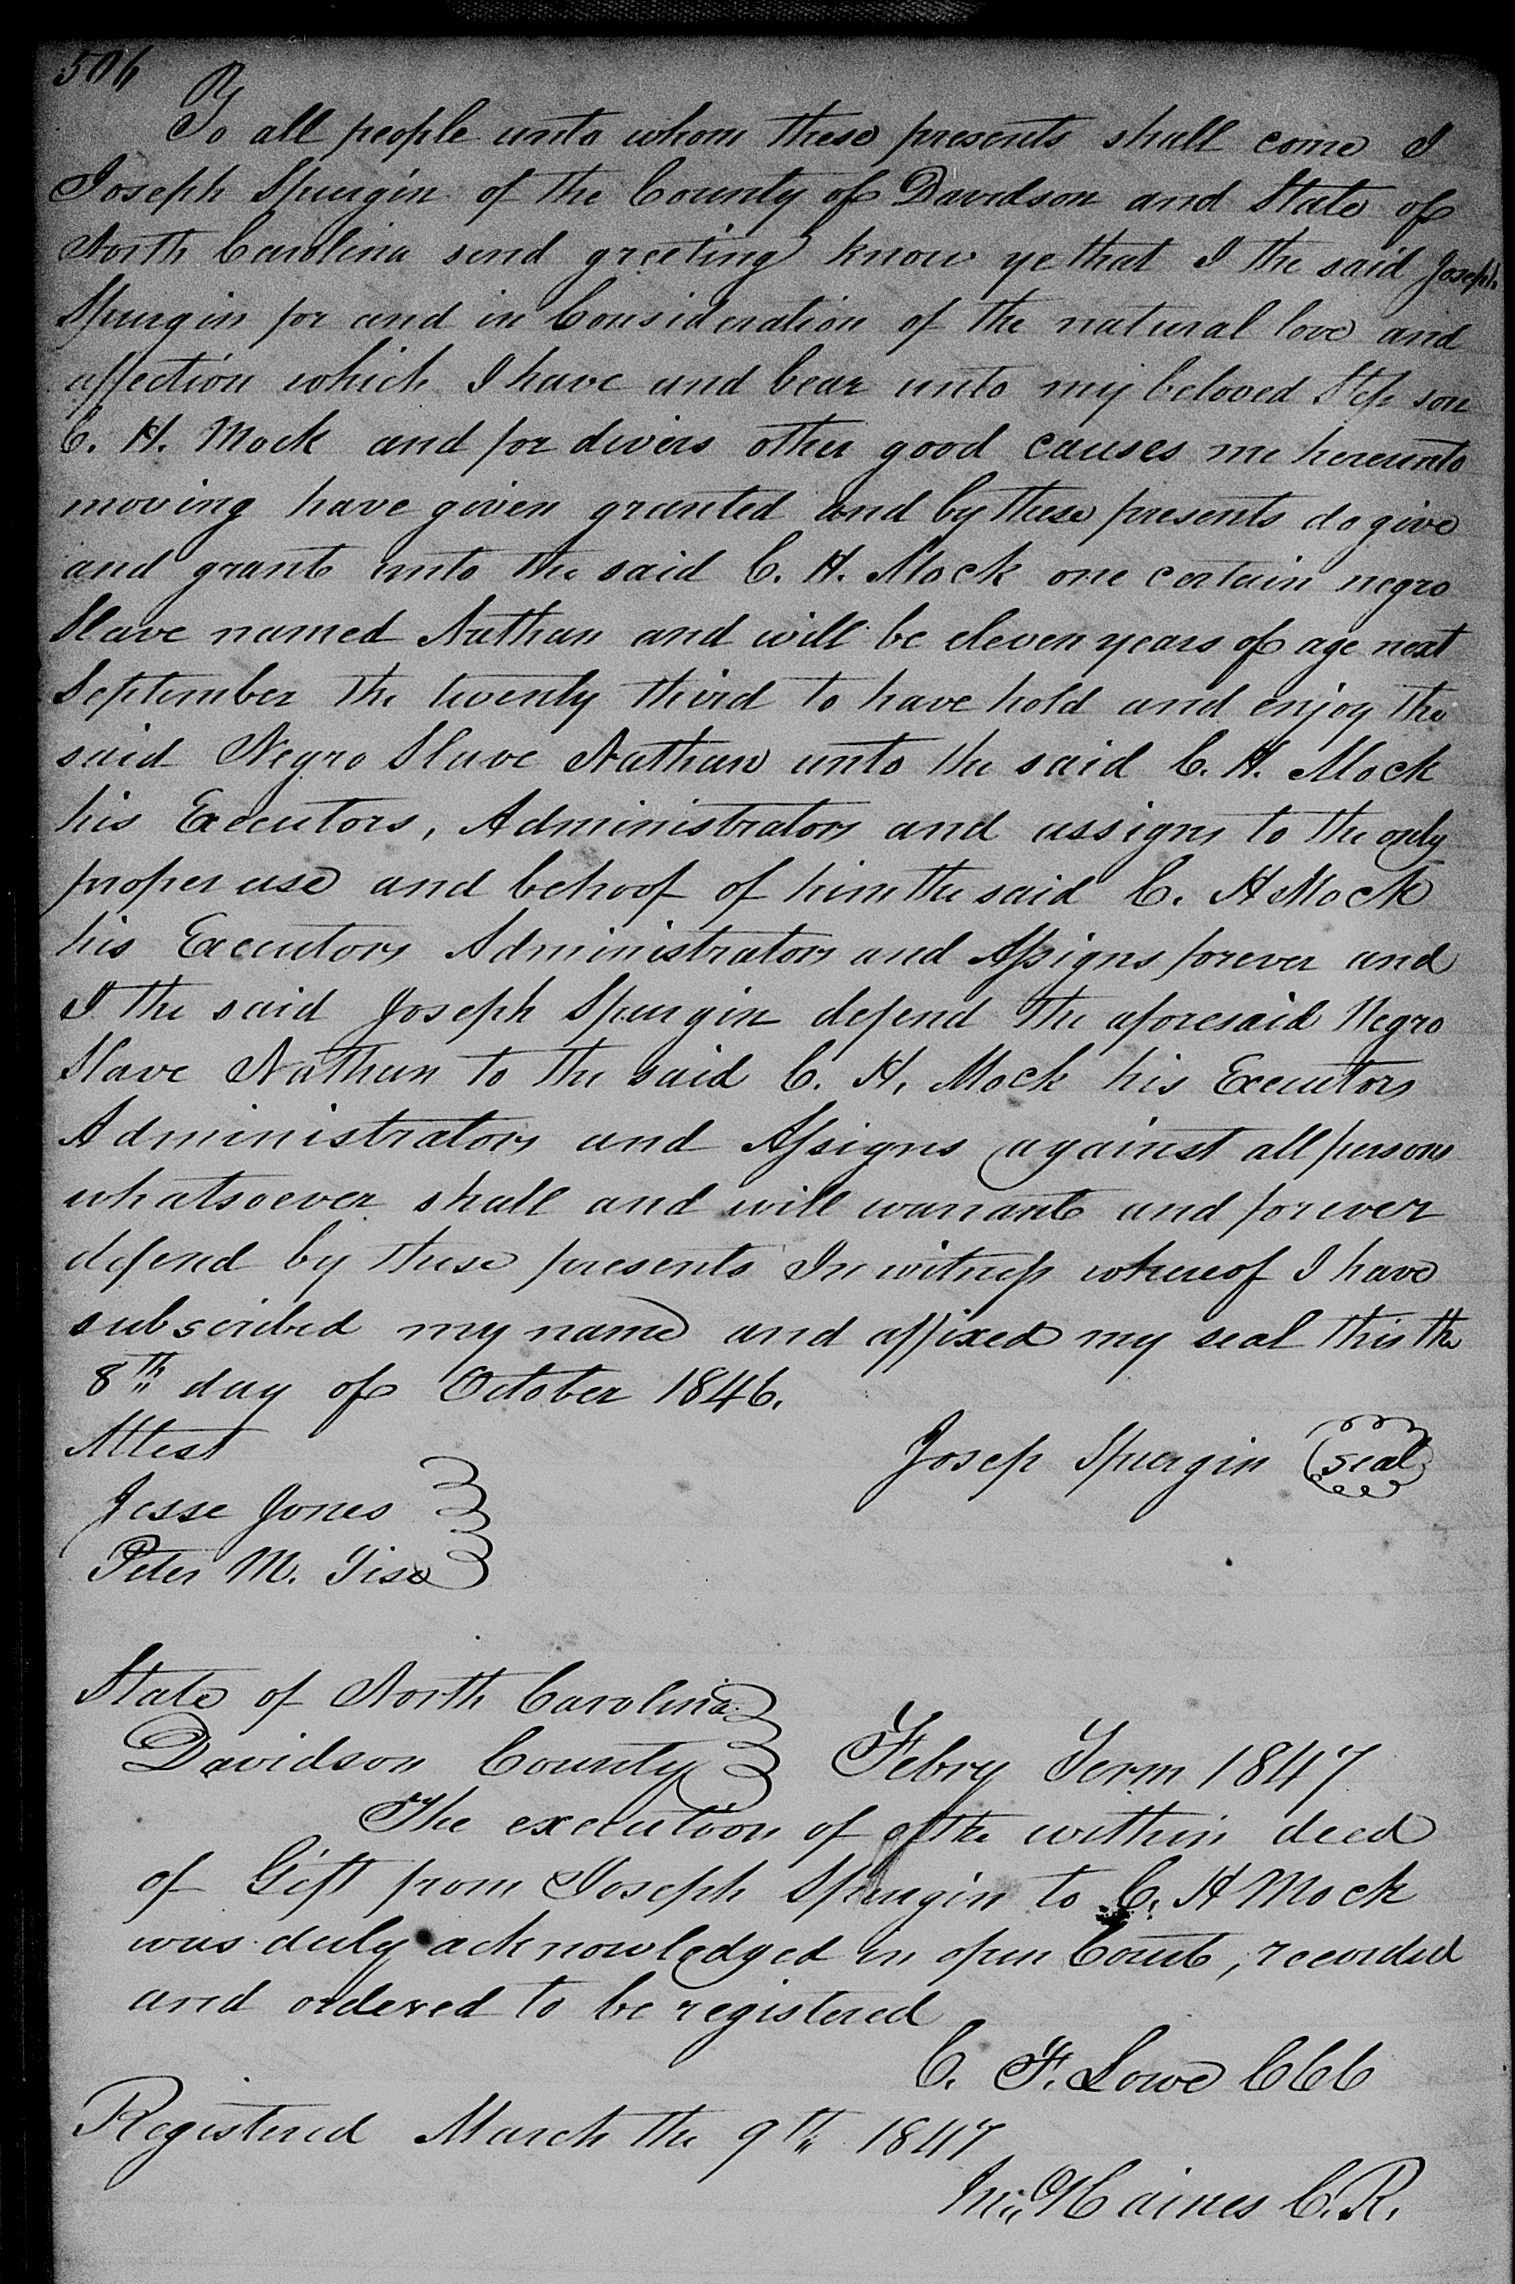 506
To all people unto whom these presents shall come I
Joseph Spurgin of the County of Davidson and State of
North Carolina send greeting know ye that I the said Joseph
Spurgin for and in Consideration of the natural love and
affection which I have and bear unto my beloved Step son
C. H. Mock and for divers other good causes me hereunto
moving have given granted and by these presents do give
and grant unto the said C. H. Mock one certain negro
Slave named Nathan and will be eleven years of age next
September the twenty third to have hold and enjoy the
said Negro Slave Nathan unto the said C. H. Mock
his Executors, Administrators and assigns to the only
proper use and behoof of him the said C. H Mock
his Executors Administrators and Assigns forever and
I the said Joseph Spurgin defend the aforesaid Negro
Slave Nathan to the said C. H. Mock his Executors
Administrators and Assigns against all persons
whatsoever shall and will warrant and forever
defend by these presents In witness whereof I have
subscribed my name and affixed my seal this the
8th day of October 1846.
Attest
Josep Spurgin (seal)
Jesse Jones
Peter M. Tise
State of North Carolina
Davidson County Febry Term 1847
The execution of of the within deed
of Gift from Joseph Spurgin to C. H Mock
was duly acknowledged in open Court, recorded
and ordered to be registered
C. F. Lowe CCC
Registered March the 9th 1847
Haines C.R.